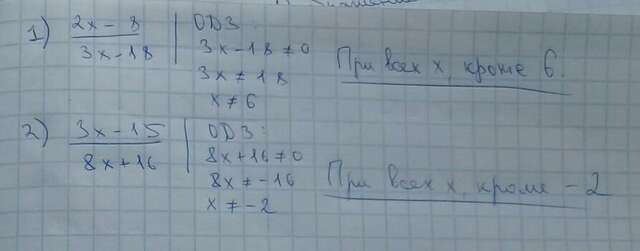 1) 2x-8 / 3x-18 | ОДЗ:
3x-18≠0
3x≠18
x≠6
При всех x, кроме 6.
2) 3x-15 / 8x+16 | ОДЗ:
8x+16≠0
8x≠-16
x≠-2
При всех x, кроме -2